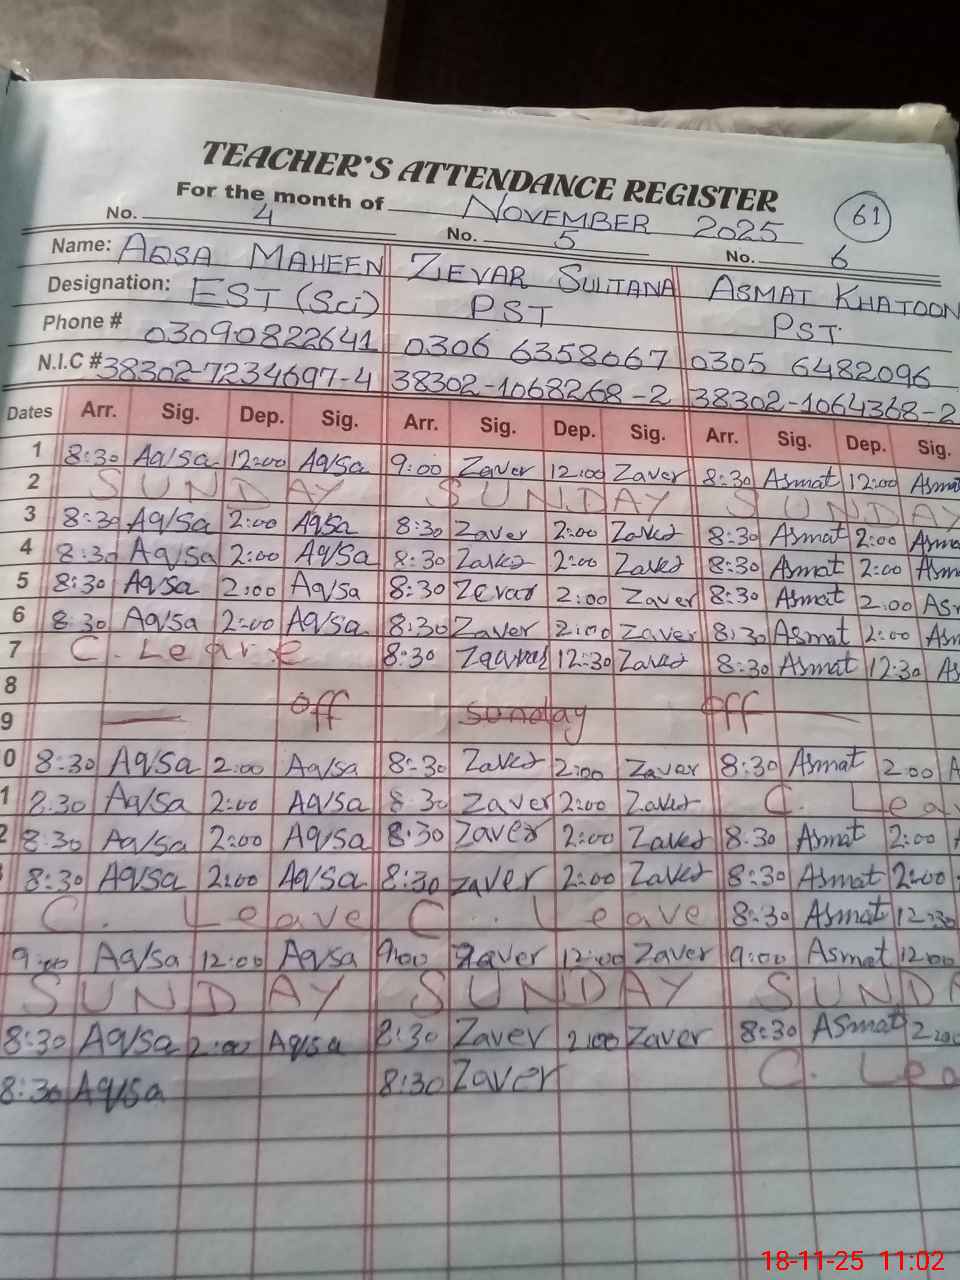 TEACHER'S ATTENDANCE REGISTER
For the month of NOVEMBER 2025 61
No. 4 No. 5 No. 6
Name: AQSA MAHEEN ZEVAR SULTANA ASMAT KHATOON
Designation: EST (Sci) PST PST
Phone # 03090822641 0306 6358067 0305 6482096
N.I.C # 38302-7234697-4 38302-1068268-2 38302-1064368-2
Dates Arr. Sig. Dep. Sig. Arr. Sig. Dep. Sig. Arr. Sig. Dep. Sig.
1 8:30 Aq/Sa 12:00 Aq/Sa 9:00 Zaver 12:00 Zaver 8:30 Asmat 12:00 Asmat
2 SUNDAY SUNDAY SUNDAY
3 8:30 Aq/Sa 2:00 Aq/Sa 8:30 Zaver 2:00 Zaver 8:30 Asmat 2:00 Asma
4 8:30 Aq/Sa 2:00 Aq/Sa 8:30 Zaver 2:00 Zaver 8:30 Asmat 2:00 Asm
5 8:30 Aq/Sa 2:00 Aq/Sa 8:30 Zevar 2:00 Zaver 8:30 Asmat 2:00 As
6 8:30 Aq/Sa 2:00 Aq/Sa 8:30 Zaver 2:00 Zaver 8:30 Asmat 2:00 Asm
7 C. Leave 8:30 12:30 Zaver 8:30 Asmat 12:30 As
8
9 off Sunday off
0 8:30 Aq/Sa 2:00 Aq/Sa 8:30 Zaver 2:00 Zaver 8:30 Asmat 2:00 A
1 8:30 Aq/Sa 2:00 Aq/Sa 8:30 Zaver 2:00 Zaver C. Lea
2 8:30 Aq/Sa 2:00 Aq/Sa 8:30 Zaver 2:00 Zaver 8:30 Asmat 2:00 A
8:30 Aq/Sa 2:00 Aq/Sa 8:30 Zaver 2:00 Zaver 8:30 Asmat 2:00
C. Leave C. Leave 8:30 Asmat 12:30
9:00 Aq/Sa 12:00 Aq/Sa 9:00 Zaver 12:00 Zaver 9:00 Asmat 12:00
SUNDAY SUNDAY SUNDA
8:30 Aq/Sa 2:00 Aq/Sa 8:30 Zaver 2:00 Zaver 8:30 Asmat 2:00
8:30 Aq/Sa 8:30 Zaver C. Lea
18-11-25 11:02